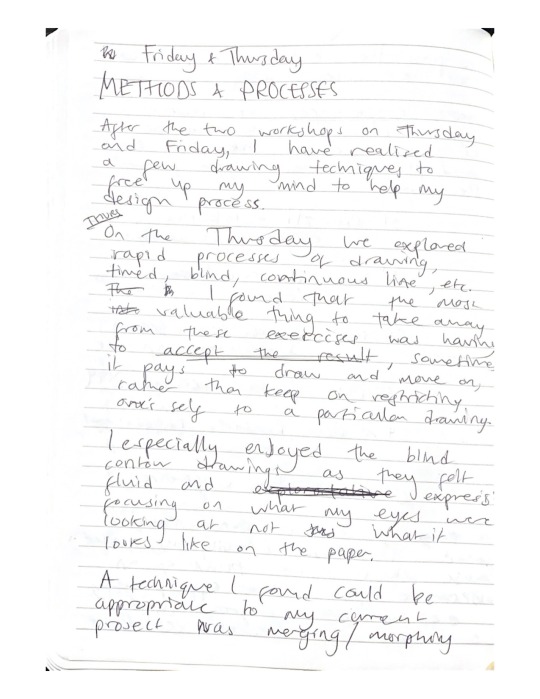 Friday & Thursday
METHODS & PROCESSES
After the two workshops on Thursday
and Friday, I have realised
a few drawing techniques to
free up my mind to help my
design process.
Thurs
On the Thursday we explored
rapid processes of drawing,
timed, blind, continuous line, etc.
The I found that the most
valuable thing to take away
from these exercises was having
to accept the result, sometime
it pays to draw and move on,
rather than keep on restricting
one's self to a particular drawing.
I especially enjoyed the blind
contour drawings as they felt
fluid and explorotative express
focusing on what my eyes were
looking at not what it
looks like on the paper.
A technique I found could be
appropriate to my current
project was merging/morphing